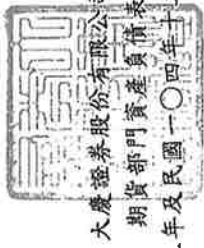 大慶證券股份有限公
期貨部門資產負債表
年及民國一〇四年十